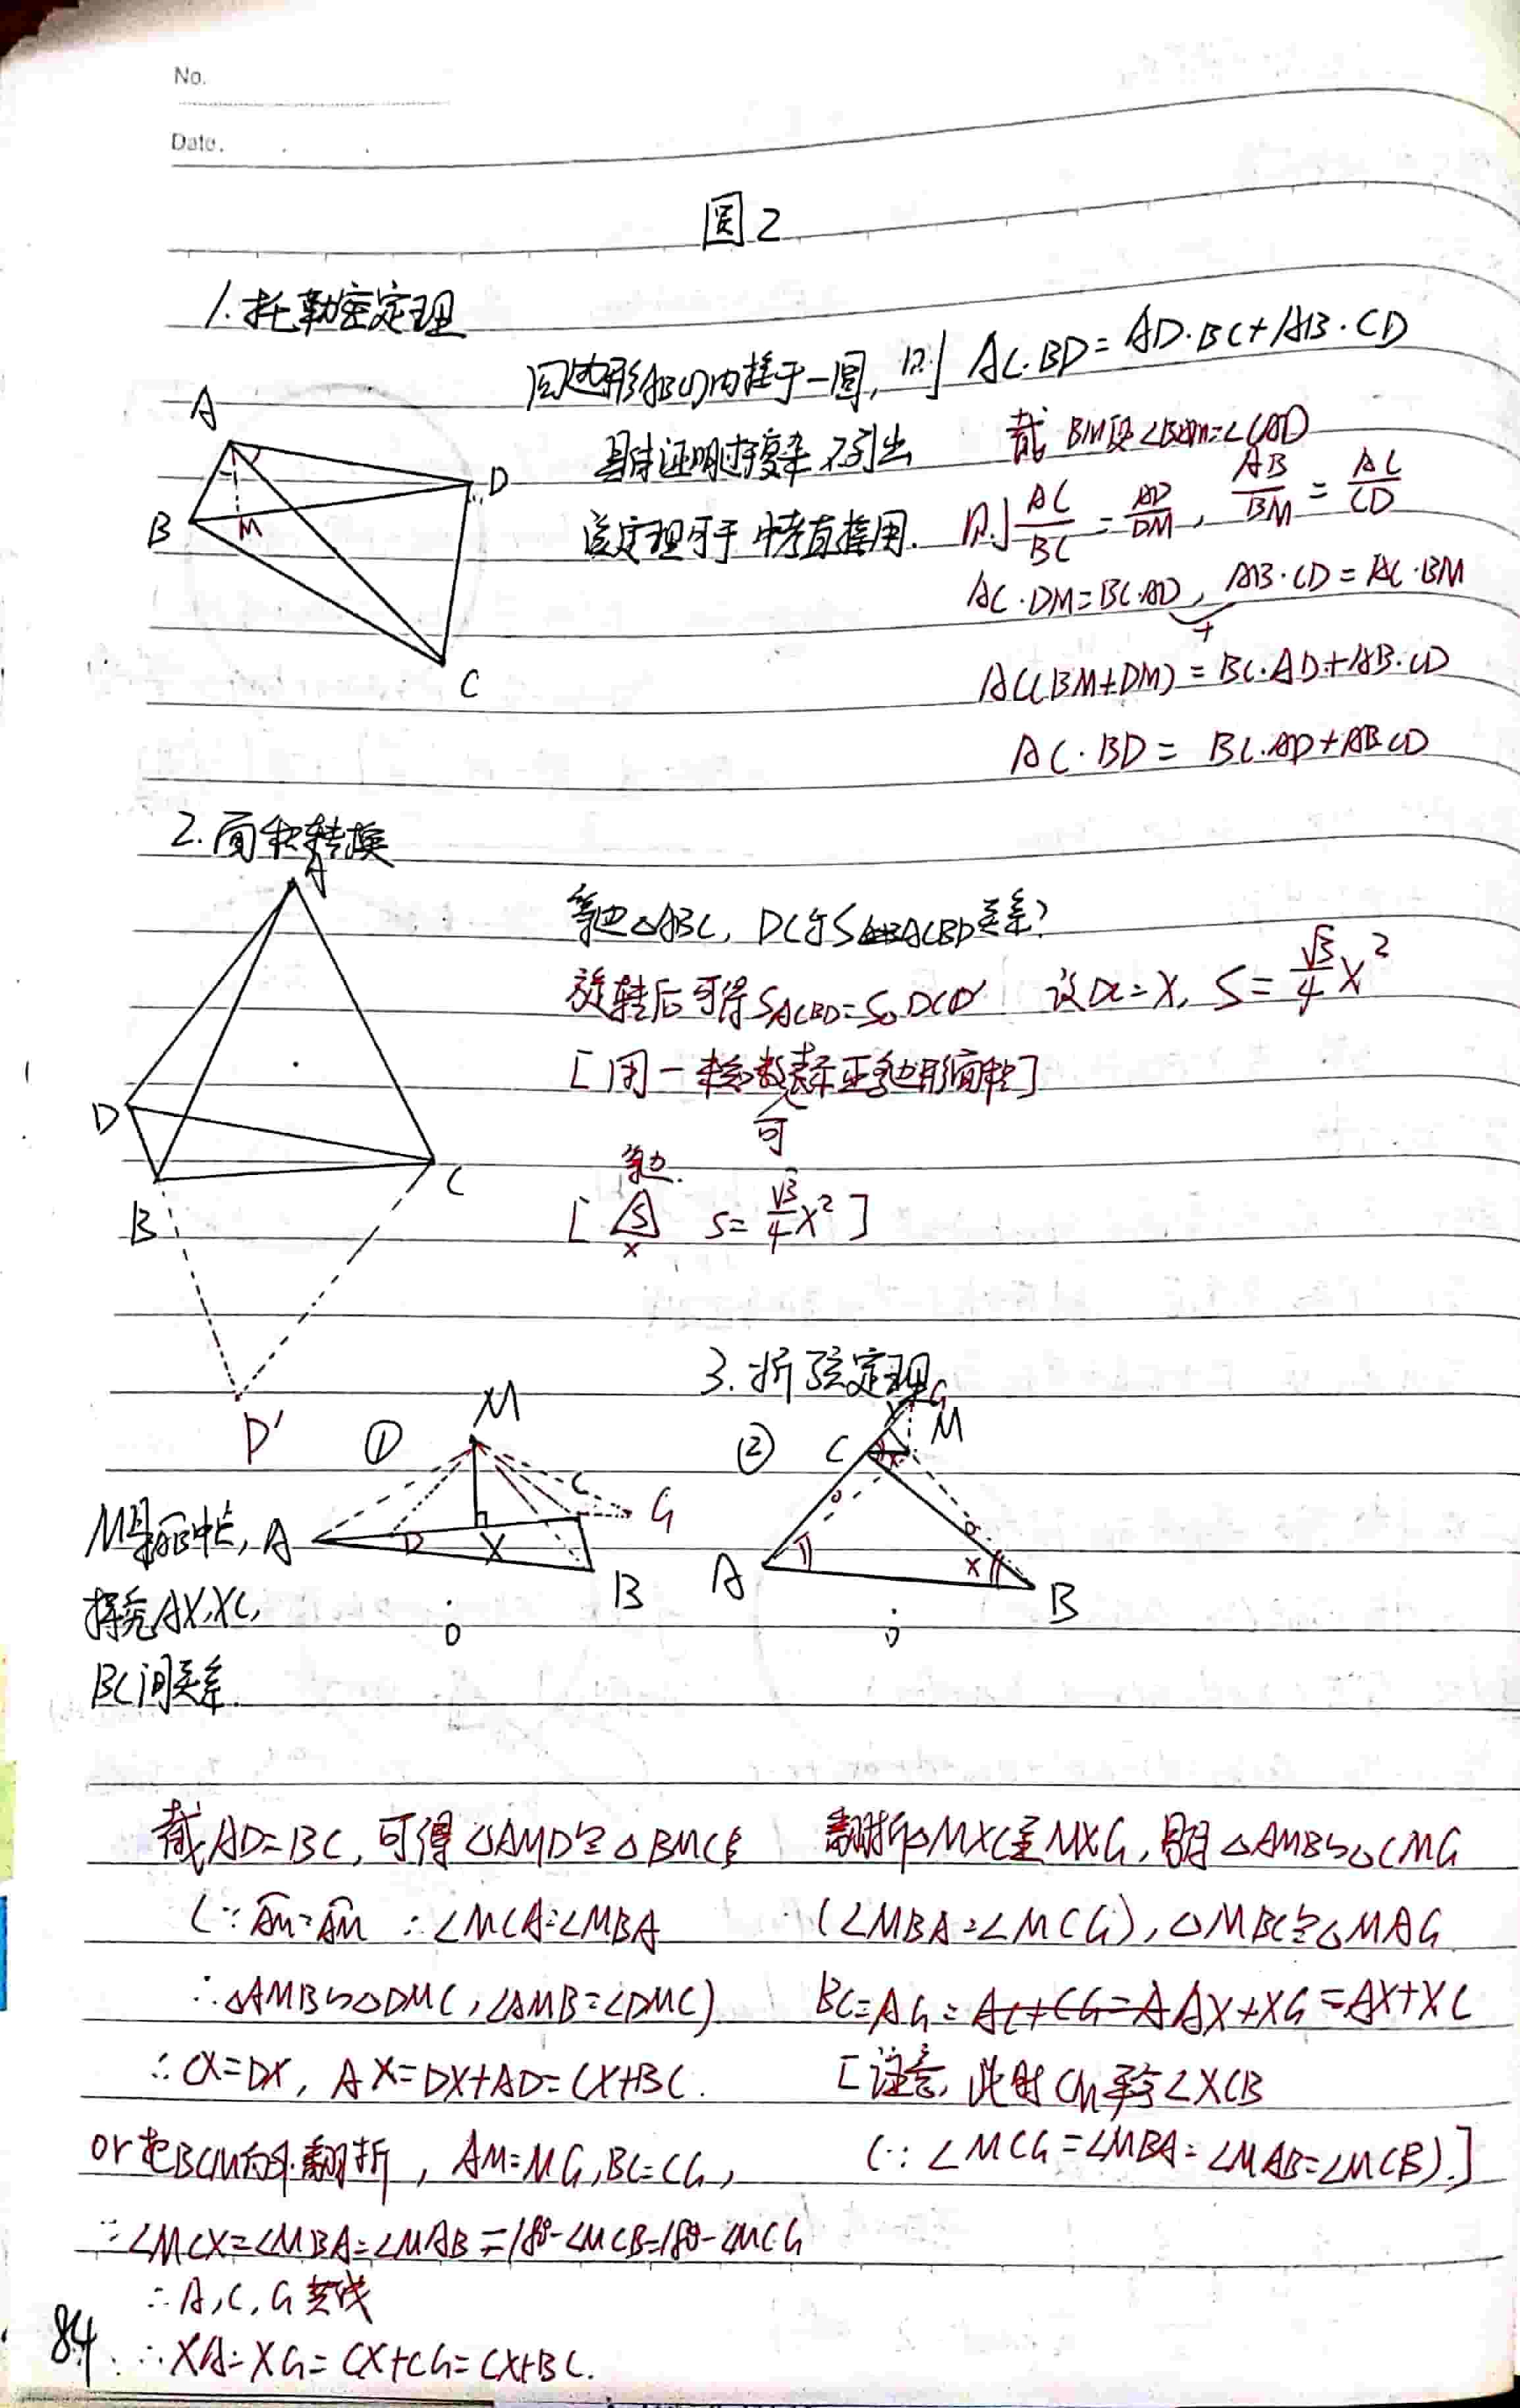 No.
Date.
圆2
1.托勒密定理
四边形ABCD内接于一圆,则 AC·BD=AD·BC+AB·CD
具体证明过于复杂 不列出
该定理可于中考直接用.
截 BM使∠BAM=∠CAD
则 AC/BC = AD/DM, AB/BM = AC/CD
AC·DM=BC·AD, AB·CD=AC·BM
+
AC(BM+DM)=BC·AD+AB·CD
AC·BD= BC·AD+AB CD
A
B
M
D
C
2.面积转换
等边△ABC, DC与S ACBD关系?
旋转后可得S ACBD=S△DCD' 设DC=x, S=√3/4 x²
[用一未知数表示正多边形面积]
可
等边.
[ S x S=√3/4 x² ]
A
D
B
C
D'
3.折弦定理
① M
A
D
X
C
G
B
O
② C
G
M
X
A
B
O
M是 中点,
探究AX,XC,
BC间关系.
截AD=BC,可得△AMD≌△BMC
(∵AM=AM ∴∠MCA=∠MBA
∴△AMB∽△DMC,∠AMB=∠DMC)
∴CX=DX, AX=DX+AD=CX+BC.
or把BCM向外翻折, AM=MG,BC=CG,
∵∠MCX=∠MBA=∠MAB=180°-∠MCB=180°-∠MCG
∴A,C,G共线
∴XA=XG=CX+CG=CX+BC.
翻折△MXC至MXG,易得△AMB∽△CMG
(∠MBA=∠MCG),△MBC≌△MAG
BC=AG= AX+XG=AX+XC
[注意,此时CM平分∠XCB
(∵∠MCG=∠MBA=∠MAB=∠MCB).]
84